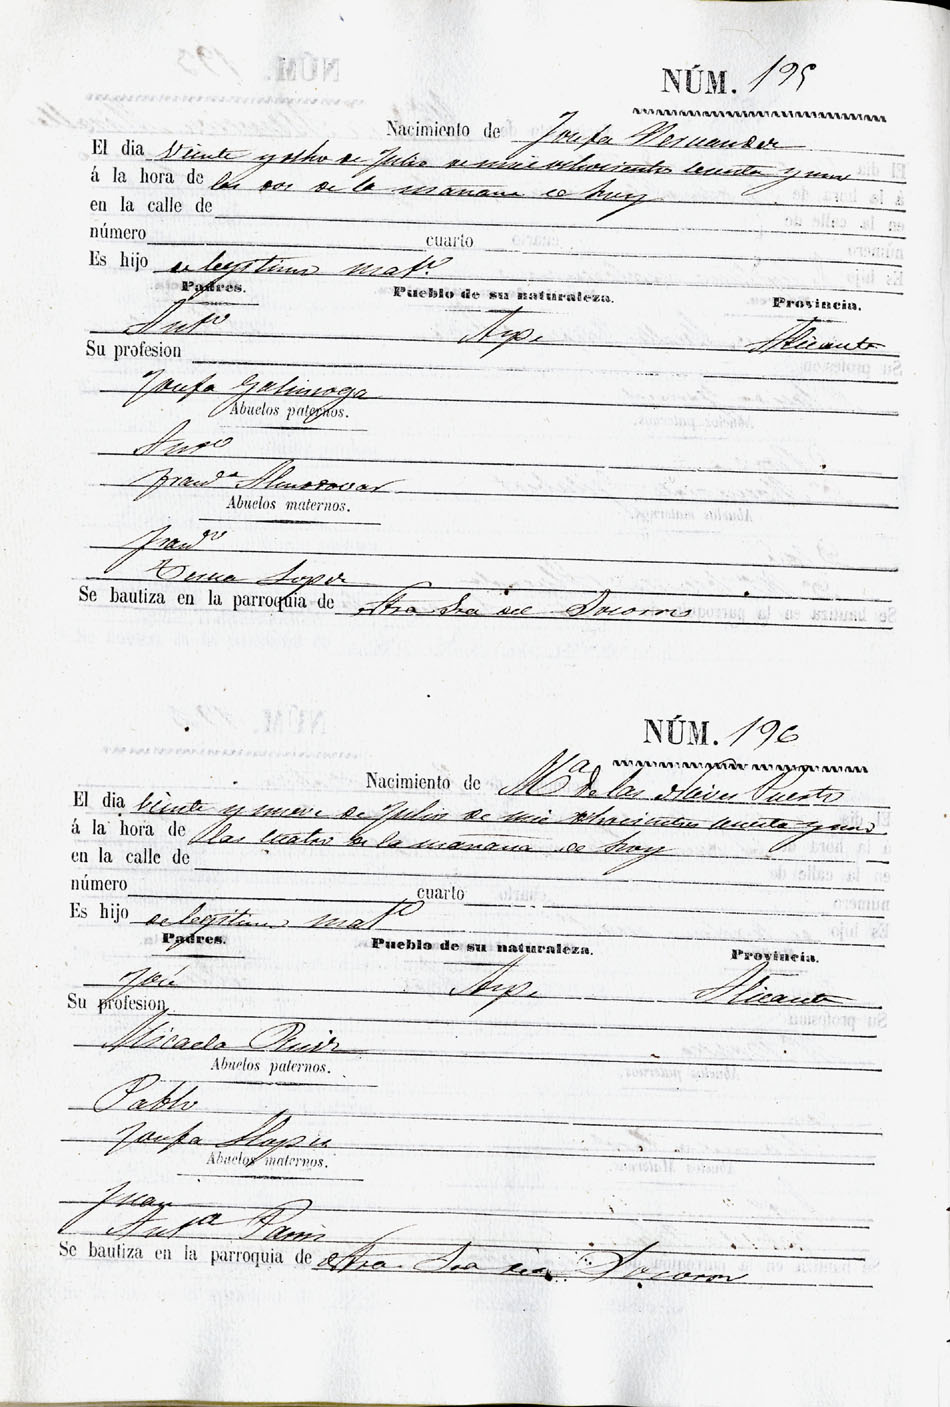 NÚM. 195
Nacimiento de Josefa Hernandez
El dia Veinte y ocho de Julio de mil ochocientos sesenta y uno
á la hora de las dos de la mañana de hoy
en la calle de
número cuarto
Es hijo de legitimo mat.º
Padres. Pueblo de su naturaleza. Provincia.
Antº Aspe Alicante
Su profesion
Josefa Galinsoga
Abuelos paternos.
Antº
Franca Almodovar
Abuelos maternos.
Franco
Teresa Lopez
Se bautiza en la parroquia de Ntra Sra del Socorro
NÚM. 196
Nacimiento de Mª de las Nieves Puerto
El dia Veinte y nueve de Julio de mil ochocientos sesenta y uno
á la hora de las cuatro de la mañana de hoy
en la calle de
número cuarto
Es hijo de legitimo matº
Padres. Pueblo de su naturaleza. Provincia.
José Aspe Alicante
Su profesion
Micaela Ruiz
Abuelos paternos.
Pablo
Josefa
Abuelos maternos.
Juan
Antª
Se bautiza en la parroquia de Ntra Sra del Socorro